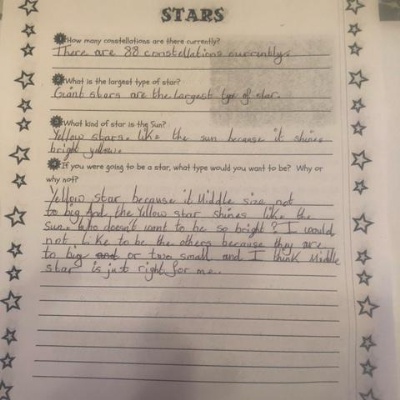 STARS
How many constellations are there currently?
There are 88 constellations currently.
What is the largest type of star?
Giant stars are the largest type of star.
What kind of star is the Sun?
Yellow stars. like the sun because it shines
bright yellow.
If you were going to be a star, what type would you want to be? Why or
why not?
Yellow star because it Middle size not
to big And the Yellow star shines like the
Sun. who doesn't want to be so bright? I would
not like to be the others because they are
to big and or two small and I think Middle
star is just right for me.